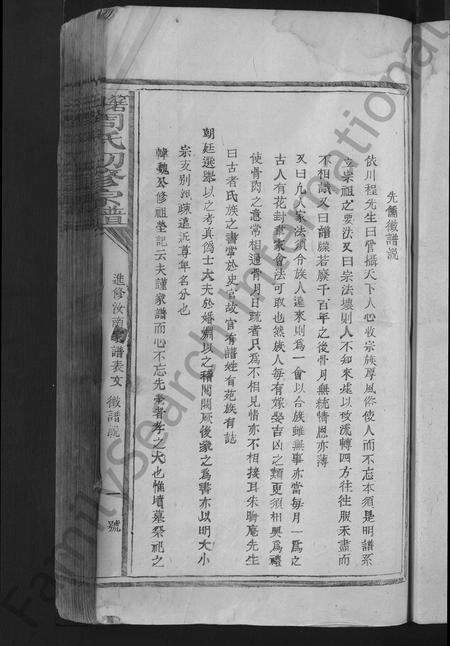 先儒徵譜說
依川程先生曰管攝天下人心收宗族厚風俗使人而不忘本須是明譜系
立宗祖之要法又曰宗法壞則人不知來處以致流轉四方往往服未盡而
不相識又曰譜牒若廢千百年之後骨肉無統情恩亦薄
又曰凡人家法須令族人遠來則為一會以合族雖無事亦當每月一為之
古人有花封韋家會法可取也然族人每有嫁娶吉凶之類更須相與為禮
使骨肉之意常相通骨肉日疏者只為不相見情亦不相接耳朱晦庵先生
曰古者氏族之書常於史官故官有譜姓有苑族有誌
朝廷選舉以之考真偽士大夫於婚姻以之稽閥閱厥後蒙之為書亦以明大小
宗亥別親疎遠近尊年名分也
韓魏公修祖塋記云夫謹家譜而心不忘先塋者孝之大也惟墳墓祭祀之
周氏初修宗譜
進修汝南家譜表文 徵譜說
一號
FamilySearch International